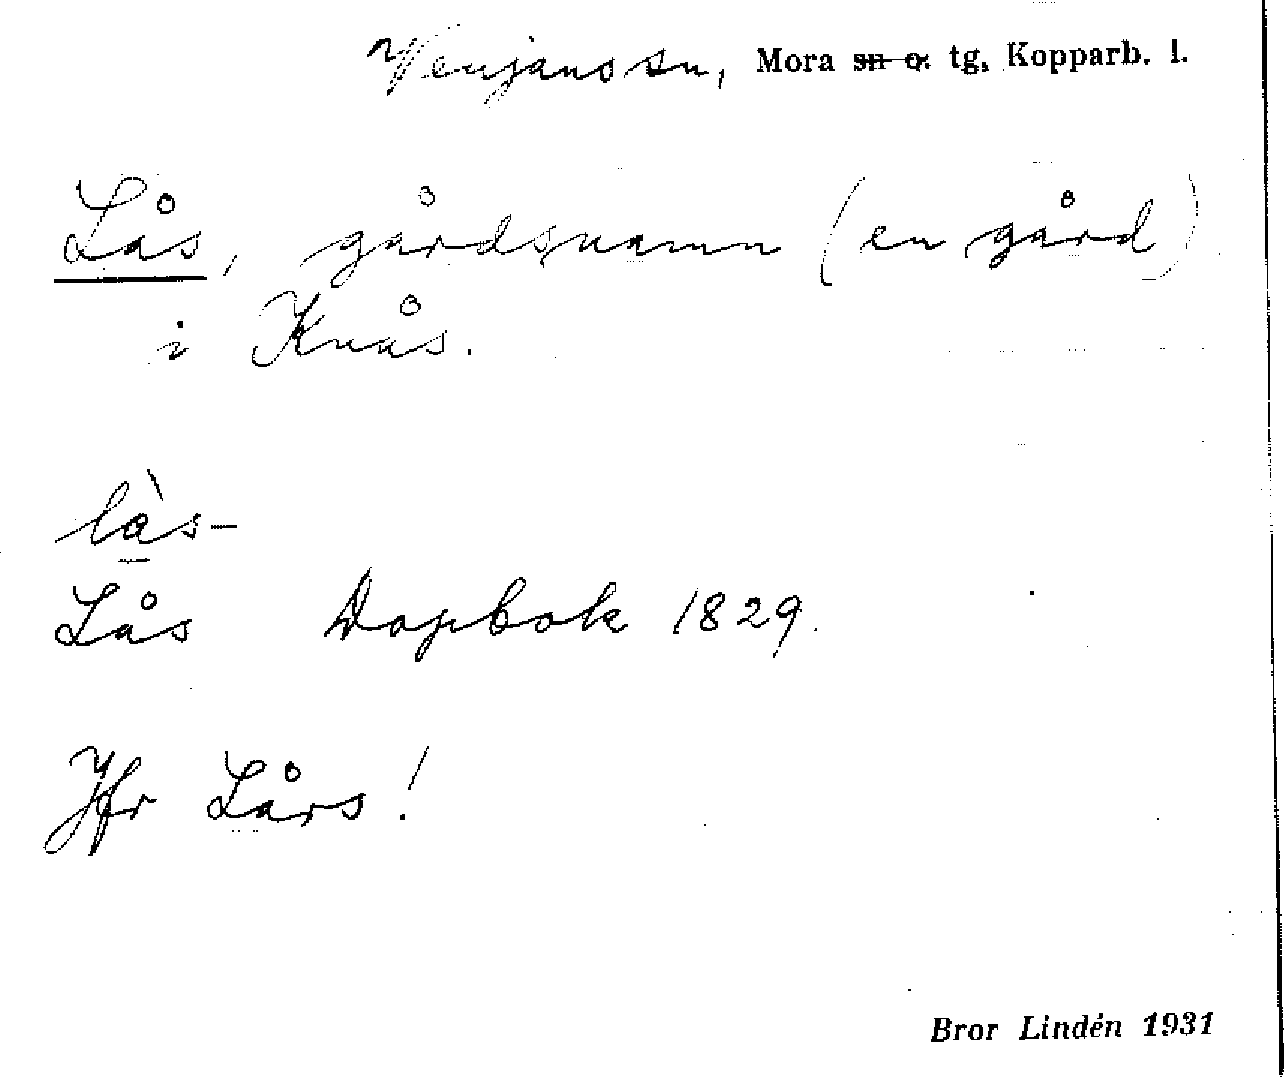 Venjans sn, Mora sn o. tg, Kopparb. l.
Lås, gårdsnamn (en gård)
i Knås.
làs-
Lås Dopbok 1829.
Jfr Lårs!
Bror Lindén 1931